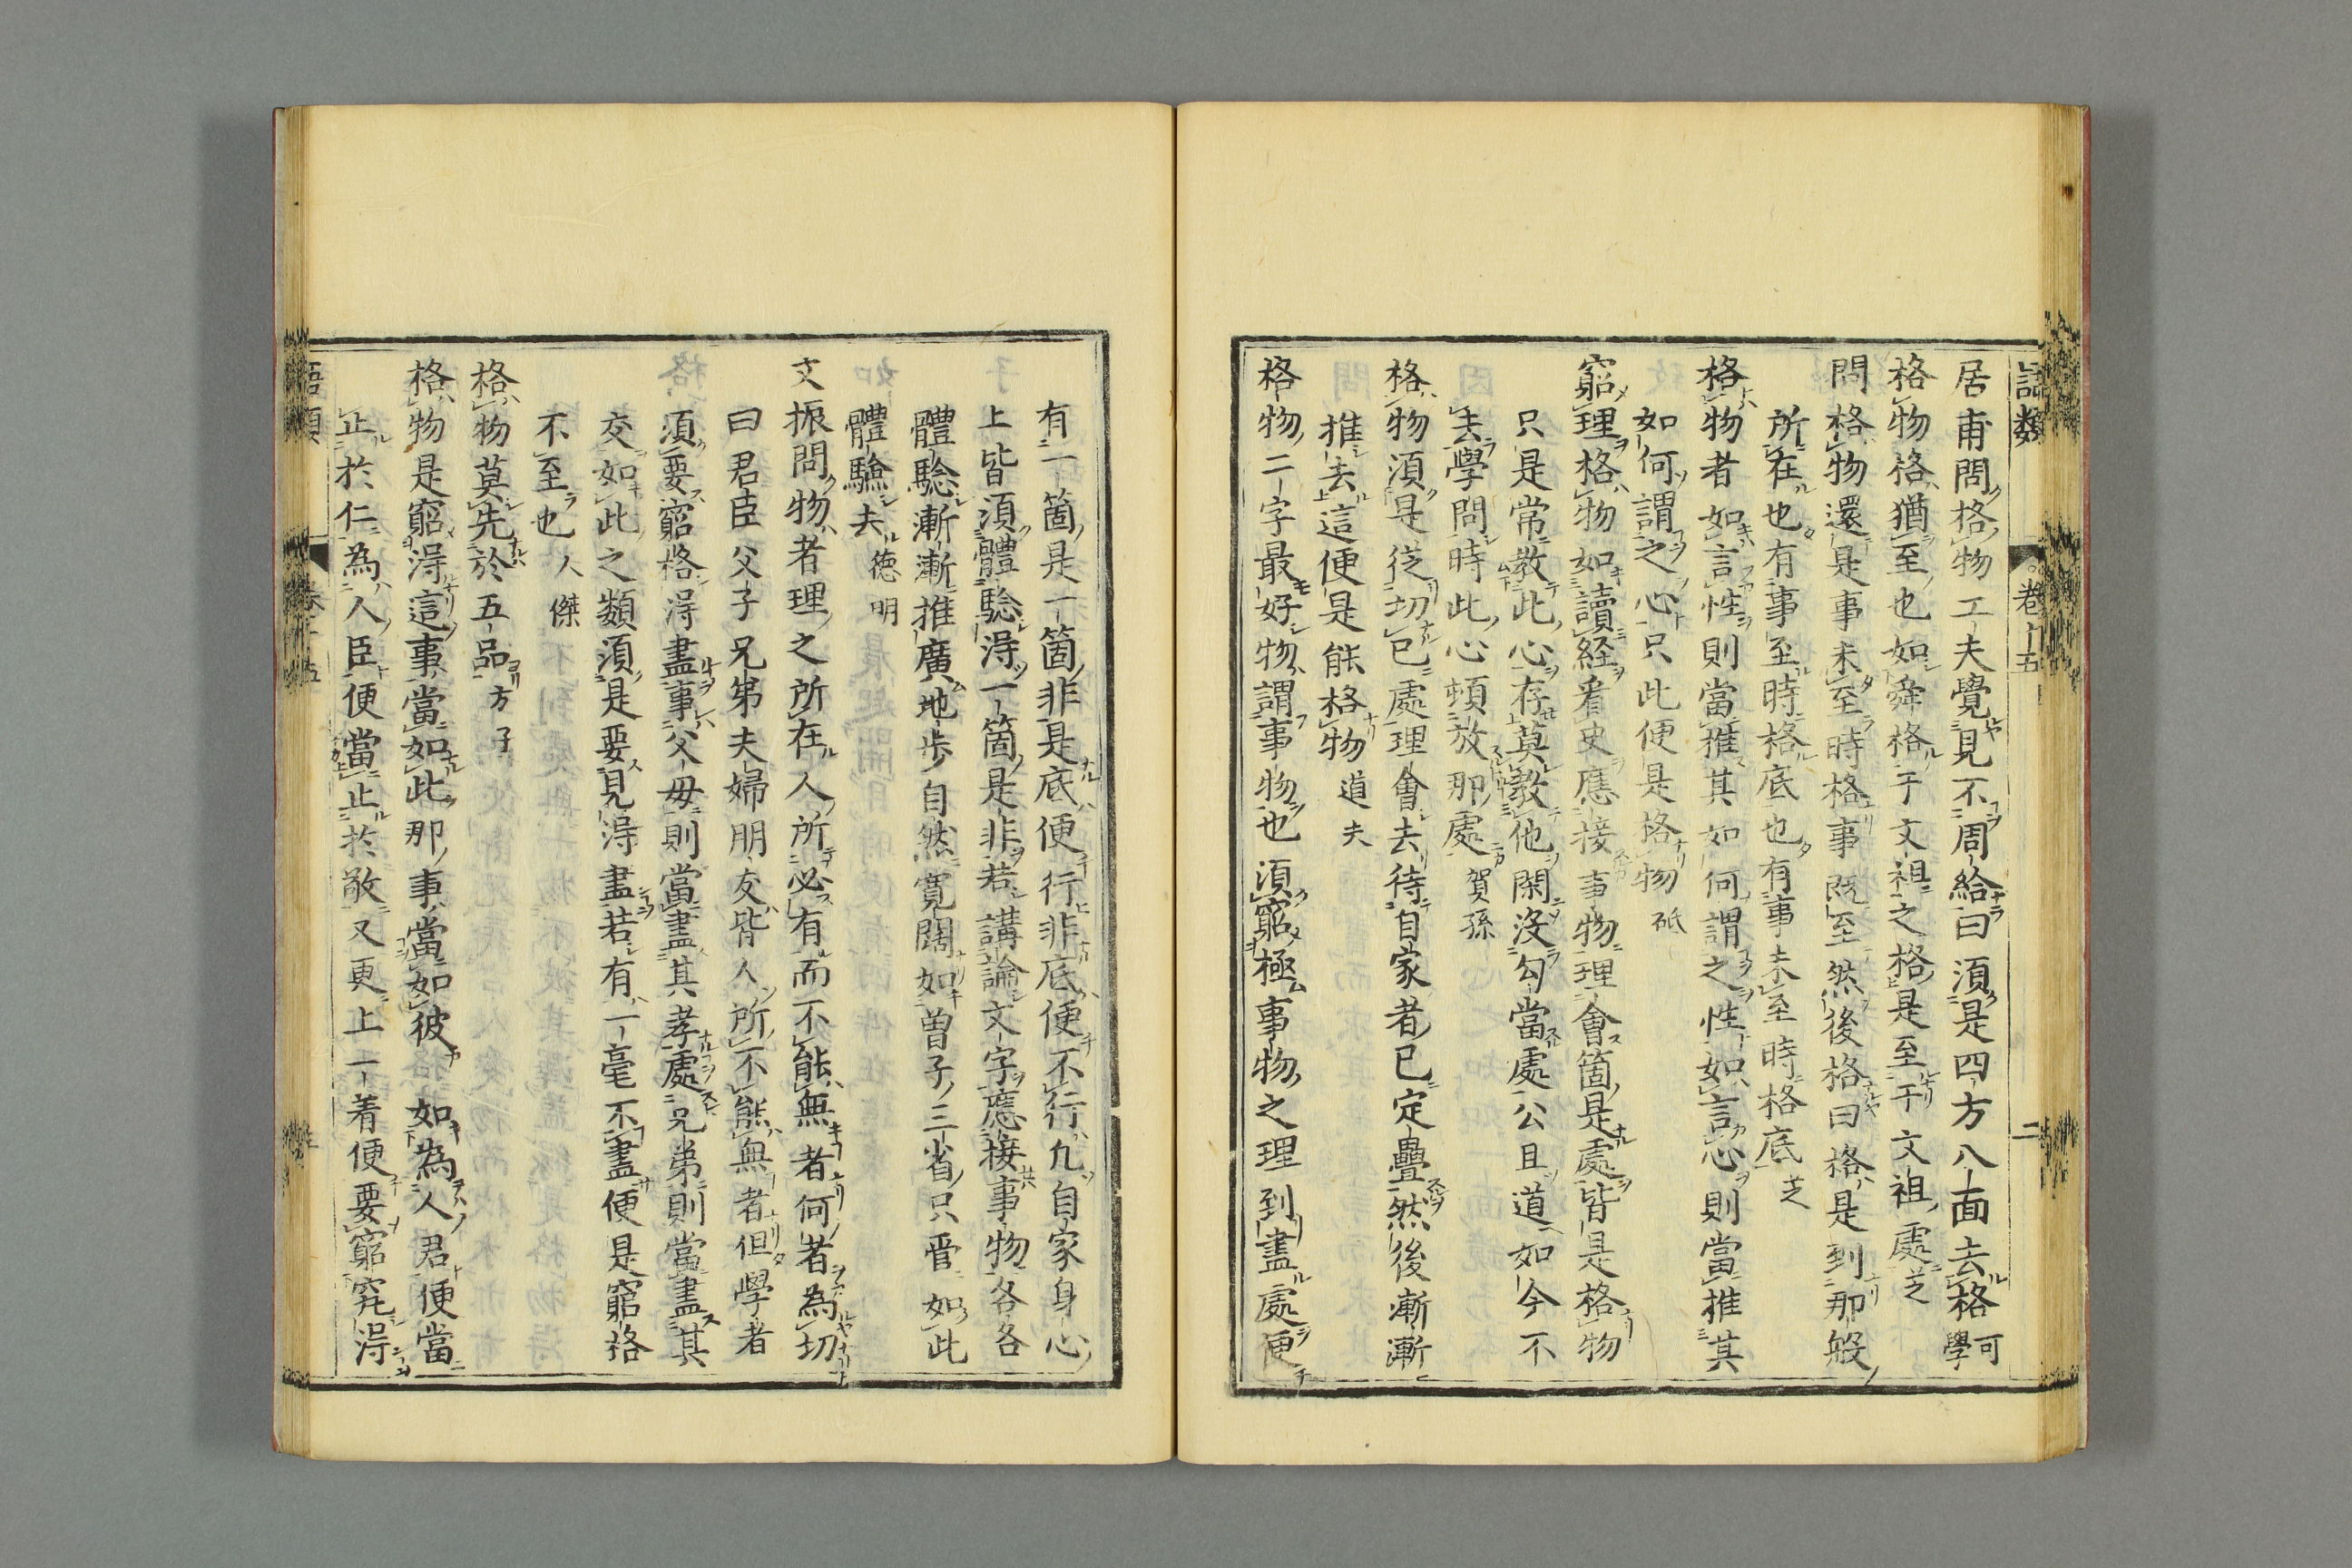 語類 卷十五 二
居甫問格物工夫覺見不周給曰須是四方八面去格可學
格物格猶至也如舜格于文祖之格是至于文祖處芝
問格物還是事未至時格事既至然後格曰格是到那般
所在也有事至時格底也有事未至時格底芝
格物者如言性則當推其如何謂之性如言心則當推其
如何謂之心只此便是格物砥
窮理格物如讀経看史應接事物理會箇是處皆是格物
只是常教此心存莫教他閑沒勾當處公且道如今不
去學問時此心頓放那處賀孫
格物須是從切己處理會去待自家者已定疊然後漸漸
推去這便是能格物道夫
格物二字最好物謂事物也須窮極事物之理到盡處便
有一箇是一箇非是底便行非底便不行凢自家身心
上皆須體驗得一箇是非若講論文字應接事物各各
體驗漸漸推廣地步自然寛闊如曾子三省只管如此
體驗去德明
文振問物者理之所在人所必有而不能無者何者為切
曰君臣父子兄弟夫婦朋友皆人所不能無者但學者
須要窮格得盡事父母則當盡其孝處兄弟則當盡其
交如此之類須是要見得盡若有一毫不盡便是窮格
不至也人傑
格物莫先於五品方子
格物是窮得這事當如此那事當如彼如為人君便當
止於仁為人臣便當止於敬又更上一着便要窮究得
語類 卷十五